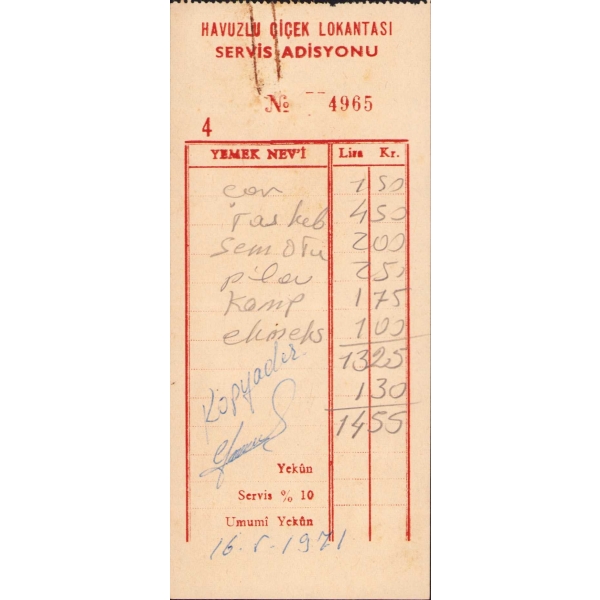 HAVUZLU ÇİÇEK LOKANTASI
SERVİS ADİSYONU
№ 4965
4
YEMEK NEV'İ Lira Kr.
çor 1 50
Tas keb 4 50
Semotu 2 00
pilav 2 50
Komp 1 75
ekmek 1 00
13 25
1 30
14 55
Kopyadır
Yekûn
Servis % 10
Umumî Yekûn
1971